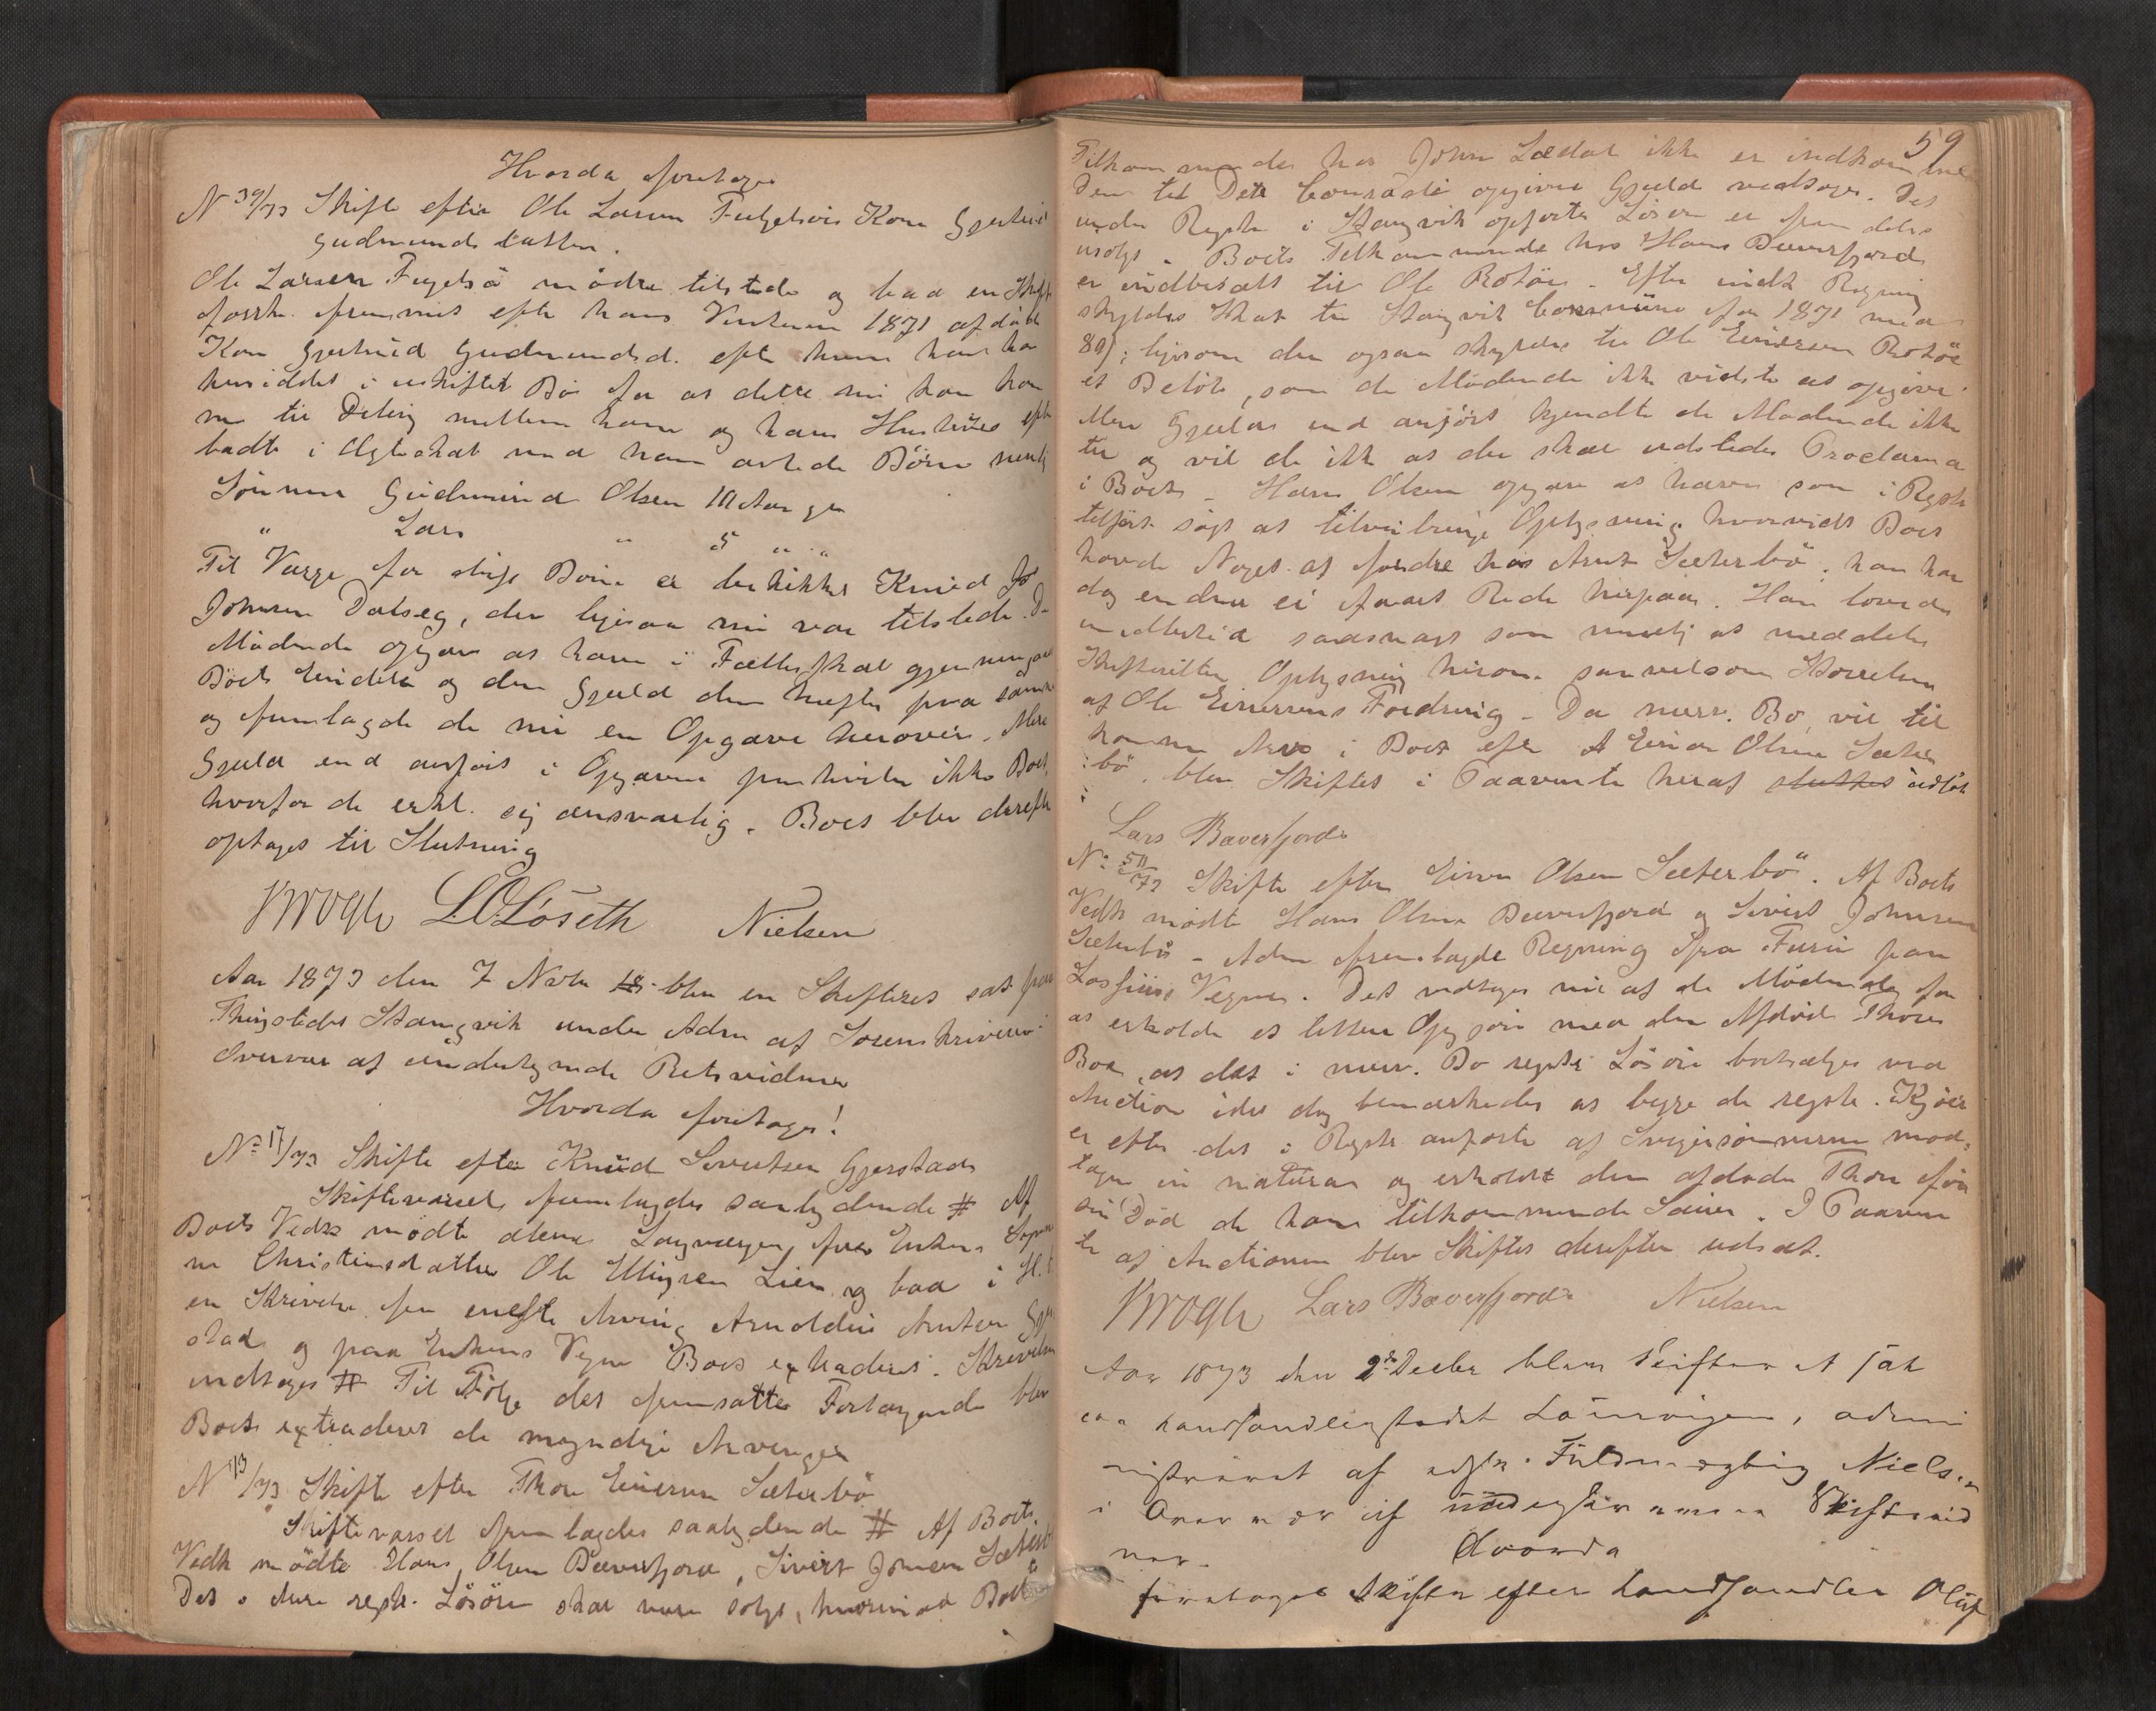 Hvorda foretoges
N 39/73 Skifte efter Ole Larsen Fugelsøis Kone Gjertrud
Gudmundsdatter.
Ole Larsen Fugelsø mødte tilstede og bad en Skifte
forrh. fremmet efter hans Vinteren 1871 afdøde
Kone Gjertrud Gudmundsd. efter hvem han har
hensiddet i uskiftet Bo for at dette nu kan kom
me til Deling mellem ham og hans Hustrues efter
ladte i Ægteskab med ham avlede Børn nemlig
Sønnen Gudmund Olsen 10 Aar gl
" Lars " 5 " "
Til Værge for disse Børn er beskikket Knud Jo
Johnsen Dalseg, der ligesaa nu var tilstede. De
Mødende opgav at have i Fællesskab gjennemgaaet
Boets Eiendele og den Gjæld der hefter paa samme
og fremlagde de nu en Opgave herover. Mere
Gjæld end anført i Opgaven paahviler ikke Boet,
hvorfor de erkl. sig ansvarlig. Boet blev derefter
optaget til Slutning
Krogh L.O.Løseth Nielsen
Aar 1873 den 7 Novbr blev en Skifteret sat paa
Thingstedet Stangvik under Adm af Sorenskriveren i
Overvær af undertegnede Retsvidner
Hvorda foretoges!
No 17/73 Skifte efter Knud Sivertsen Gjerstad
Skiftevarsel fremlagdes saalydende # Af
Boets Vedk mødte alene Laugværgen for Enken
Christensdatter Ole Ellingsen Lien og bad i H. t.
en Skrivelse fra eneste Arving Arnoldus Knutsen Gjer
stad og paa Enkens Vegne Boet extraderet. Skrivelsen
indtages # Til Følge det fremsatte Forlangende blev
Boet extraderet de myndige Arvinger
N 13/73 Skifte efter Thore Einersen Sæterbø
Skiftevarsel fremlagdes saalydende # Af Boets
Vedk mødte Hans Olsen Bæverfjord, Sivert Johnsen Sæterbø
Det i dette regstr. Løsøre skal være solgt, hvorimod Boets
59
Tilkommende hos John Lædal ikke er indkommet
Den til Dette opgivne Gjæld vedtoges. Det
under Regstr i Stangvik opførte Løsøre er fremdeles
usolgt. Boets Tilkommende hos Hans Bæverfjord
er indbetalt til Ole Rotøe. Efter indk Regning
skyldes Skat til Stangvik Commune for 1871 med
89; ligesom der ogsaa skyldes til Ole Einersen Rotøe
et Beløb, som de Mødende ikke vidste at opgive.
Mere Gjæld end anført kjendte de Mødende ikke
til og vil de ikke at der skal udstedes Proclama
i Boet. Hans Olsen opgav at have som i Regstr
tilført søgt at tilveiebringe Oplysning hvorvidt Boet
havde Noget at fordre hos Arnt Sæterbø. han har
dog endnu ei faaet Rede herpaa. Han lovede
imidlertid saasnart som mulig at meddele
Skifteretten Oplysning herom saavelsom Størrelsen
af Ole Einersens Fordring. Da nærv. Bo vil til
komme Arv i Boet efter Einar Olsen Sæter
bø, blev Skiftet i Paavente heraf udsat
Lars Bæverfjord
No 50/73 Skifte efter Einer Olsen Sæterbø. Af Boets
Vedk mødte Hans Olsen Bæverfjord og Sivert Johnsen
Sæterbø. Adm fremlagde Regning fra Furu paa
Lossius's Vegne. Det vedtoges nu af de Mødende for
at erholde et lettere Opgjør med den Afdøde Thores
Bo, at det i nærv. Bo regstr Løsøre bortsælges ved
Auction idet dog bemærkedes at begge de regstr. Kjør
er efter det i Regstr anførte af Svigersønnerne mod-
tagne in natura og erholdt den afdøde Thore før
sin Død de ham tilkommende Sauer. I Paaven
te af Auctionen blev Skiftet derefter udsat.
Krogh Lars Bæverfjord Nielsen
Aar 1873 den 2de Decbr blev Skifteret sat
paa Landhandlerstedet administreret af edsv. Fuldmægtig Nielsen
i Overvær af undertegnede Skiftevid
ner.
Hvorda
foretoges Skifte efter Landhandler Oluf